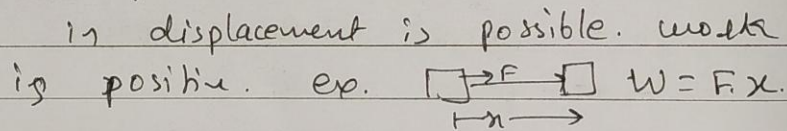 in displacement is possible. work
is positive. ex. F W = F. x.
x